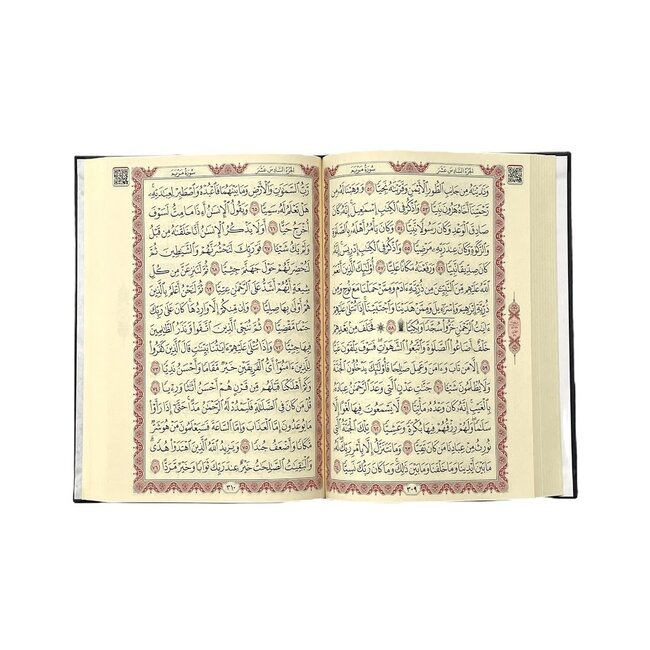 سُورَةُ مَرْيَمَ الجُزْءُ السَّادِسَ عَشَرَ
وَنَٰدَيْنَٰهُ مِن جَانِبِ ٱلطُّورِ ٱلْأَيْمَنِ وَقَرَّبْنَٰهُ نَجِيًّا ٥٢ وَوَهَبْنَا لَهُۥ مِن
رَّحْمَتِنَآ أَخَاهُ هَٰرُونَ نَبِيًّا ٥٣ وَٱذْكُرْ فِى ٱلْكِتَٰبِ إِسْمَٰعِيلَ إِنَّهُۥ كَانَ
صَادِقَ ٱلْوَعْدِ وَكَانَ رَسُولًا نَّبِيًّا ٥٤ وَكَانَ يَأْمُرُ أَهْلَهُۥ بِٱلصَّلَوٰةِ
وَٱلزَّكَوٰةِ وَكَانَ عِندَ رَبِّهِۦ مَرْضِيًّا ٥٥ وَٱذْكُرْ فِى ٱلْكِتَٰبِ إِدْرِيسَ إِنَّهُۥ
كَانَ صِدِّيقًا نَّبِيًّا ٥٦ وَرَفَعْنَٰهُ مَكَانًا عَلِيًّا ٥٧ أُو۟لَٰٓئِكَ ٱلَّذِينَ أَنْعَمَ
ٱللَّهُ عَلَيْهِم مِّنَ ٱلنَّبِيِّۦنَ مِن ذُرِّيَّةِ ءَادَمَ وَمِمَّنْ حَمَلْنَا مَعَ نُوحٍ وَمِن
ذُرِّيَّةِ إِبْرَٰهِيمَ وَإِسْرَٰٓءِيلَ وَمِمَّنْ هَدَيْنَا وَٱجْتَبَيْنَآ إِذَا تُتْلَىٰ عَلَيْهِمْ
ءَايَٰتُ ٱلرَّحْمَٰنِ خَرُّوا۟ سُجَّدًا وَبُكِيًّا ۩ ٥٨ ۞ فَخَلَفَ مِنۢ بَعْدِهِمْ
خَلْفٌ أَضَاعُوا۟ ٱلصَّلَوٰةَ وَٱتَّبَعُوا۟ ٱلشَّهَوَٰتِ فَسَوْفَ يَلْقَوْنَ غَيًّا
٥٩ إِلَّا مَن تَابَ وَءَامَنَ وَعَمِلَ صَٰلِحًا فَأُو۟لَٰٓئِكَ يَدْخُلُونَ ٱلْجَنَّةَ
وَلَا يُظْلَمُونَ شَيْـًٔا ٦٠ جَنَّٰتِ عَدْنٍ ٱلَّتِى وَعَدَ ٱلرَّحْمَٰنُ عِبَادَهُۥ
بِٱلْغَيْبِ إِنَّهُۥ كَانَ وَعْدُهُۥ مَأْتِيًّا ٦١ لَّا يَسْمَعُونَ فِيهَا لَغْوًا إِلَّا
سَلَٰمًا وَلَهُمْ رِزْقُهُمْ فِيهَا بُكْرَةً وَعَشِيًّا ٦٢ تِلْكَ ٱلْجَنَّةُ ٱلَّتِى
نُورِثُ مِنْ عِبَادِنَا مَن كَانَ تَقِيًّا ٦٣ وَمَا نَتَنَزَّلُ إِلَّا بِأَمْرِ رَبِّكَ لَهُۥ
مَا بَيْنَ أَيْدِينَا وَمَا خَلْفَنَا وَمَا بَيْنَ ذَٰلِكَ وَمَا كَانَ رَبُّكَ نَسِيًّا ٦٤
٣٠٩
سُورَةُ مَرْيَمَ الجُزْءُ السَّادِسَ عَشَرَ
رَّبُّ ٱلسَّمَٰوَٰتِ وَٱلْأَرْضِ وَمَا بَيْنَهُمَا فَٱعْبُدْهُ وَٱصْطَبِرْ لِعِبَٰدَتِهِۦ
هَلْ تَعْلَمُ لَهُۥ سَمِيًّا ٦٥ وَيَقُولُ ٱلْإِنسَٰنُ أَءِذَا مَا مِتُّ لَسَوْفَ
أُخْرَجُ حَيًّا ٦٦ أَوَلَا يَذْكُرُ ٱلْإِنسَٰنُ أَنَّا خَلَقْنَٰهُ مِن قَبْلُ
وَلَمْ يَكُ شَيْـًٔا ٦٧ فَوَرَبِّكَ لَنَحْشُرَنَّهُمْ وَٱلشَّيَٰطِينَ ثُمَّ
لَنُحْضِرَنَّهُمْ حَوْلَ جَهَنَّمَ جِثِيًّا ٦٨ ثُمَّ لَنَنزِعَنَّ مِن كُلِّ
شِيعَةٍ أَيُّهُمْ أَشَدُّ عَلَى ٱلرَّحْمَٰنِ عِتِيًّا ٦٩ ثُمَّ لَنَحْنُ أَعْلَمُ بِٱلَّذِينَ
هُمْ أَوْلَىٰ بِهَا صِلِيًّا ٧٠ وَإِن مِّنكُمْ إِلَّا وَارِدُهَا كَانَ عَلَىٰ رَبِّكَ
حَتْمًا مَّقْضِيًّا ٧١ ثُمَّ نُنَجِّى ٱلَّذِينَ ٱتَّقَوا۟ وَّنَذَرُ ٱلظَّٰلِمِينَ
فِيهَا جِثِيًّا ٧٢ وَإِذَا تُتْلَىٰ عَلَيْهِمْ ءَايَٰتُنَا بَيِّنَٰتٍ قَالَ ٱلَّذِينَ كَفَرُوا۟
لِلَّذِينَ ءَامَنُوٓا۟ أَىُّ ٱلْفَرِيقَيْنِ خَيْرٌ مَّقَامًا وَأَحْسَنُ نَدِيًّا ٧٣
وَكَمْ أَهْلَكْنَا قَبْلَهُم مِّن قَرْنٍ هُمْ أَحْسَنُ أَثَٰثًا وَرِءْيًا ٧٤
قُلْ مَن كَانَ فِى ٱلضَّلَٰلَةِ فَلْيَمْدُدْ لَهُ ٱلرَّحْمَٰنُ مَدًّا حَتَّىٰٓ إِذَا رَأَوْا۟
مَا يُوعَدُونَ إِمَّا ٱلْعَذَابَ وَإِمَّا ٱلسَّاعَةَ فَسَيَعْلَمُونَ مَنْ هُوَ شَرٌّ
مَّكَانًا وَأَضْعَفُ جُندًا ٧٥ وَيَزِيدُ ٱللَّهُ ٱلَّذِينَ ٱهْتَدَوْا۟ هُدًى
وَٱلْبَٰقِيَٰتُ ٱلصَّٰلِحَٰتُ خَيْرٌ عِندَ رَبِّكَ ثَوَابًا وَخَيْرٌ مَّرَدًّا ٧٦
٣١٠